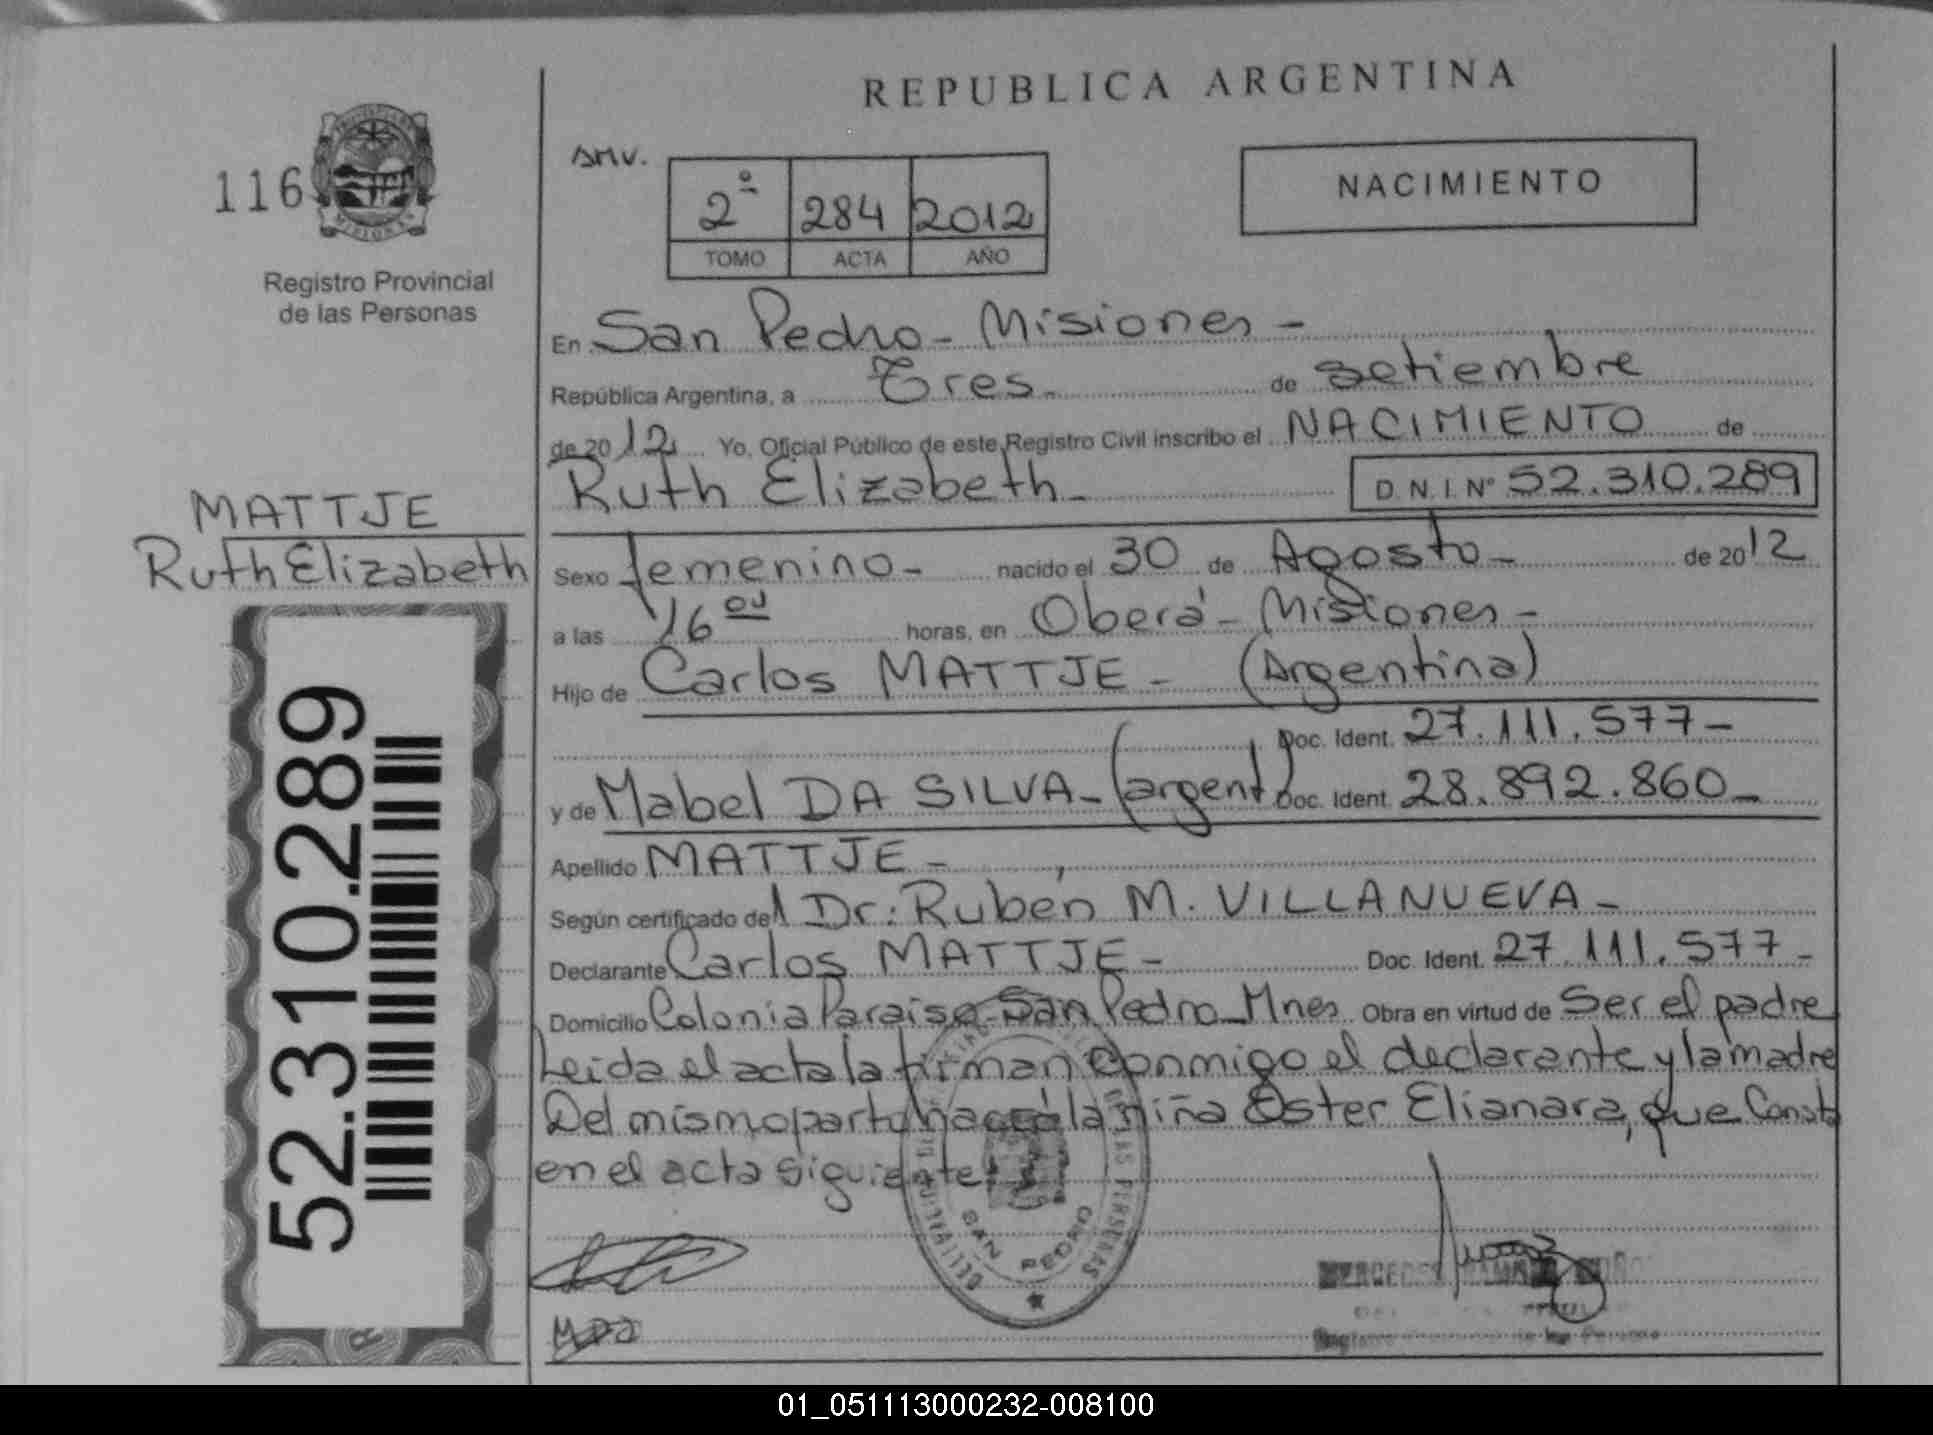 REPUBLICA ARGENTINA
116
MISIONES
Registro Provincial
de las Personas
SMV.
2º 284 2012
TOMO ACTA AÑO
NACIMIENTO
En San Pedro - Misiones -
República Argentina, a Tres - de setiembre
de 2012 Yo, Oficial Público de este Registro Civil inscribo el NACIMIENTO de
Ruth Elizabeth - D.N.I. Nº 52.310.289
MATTJE
Ruth Elizabeth
52.310.289
Sexo femenino - nacido el 30 de Agosto - de 2012
a las 16 00 horas, en Oberá - Misiones -
Hijo de Carlos MATTJE - (Argentina)
Doc. Ident. 27.111.577 -
y de Mabel DA SILVA - (argent) Doc. Ident. 28.892.860 -
Apellido MATTJE -
Según certificado del Dr: Rubén M. VILLANUEVA -
Declarante Carlos MATTJE - Doc. Ident. 27.111.577 -
Domicilio Colonia Paraiso San Pedro - Mnes Obra en virtud de Ser el padre
Leida el acta la firman conmigo el declarante y la madre
Del mismo parto nació la niña Ester Elianara, que Consta
en el acta siguiente
SAN PEDRO
01_051113000232-008100